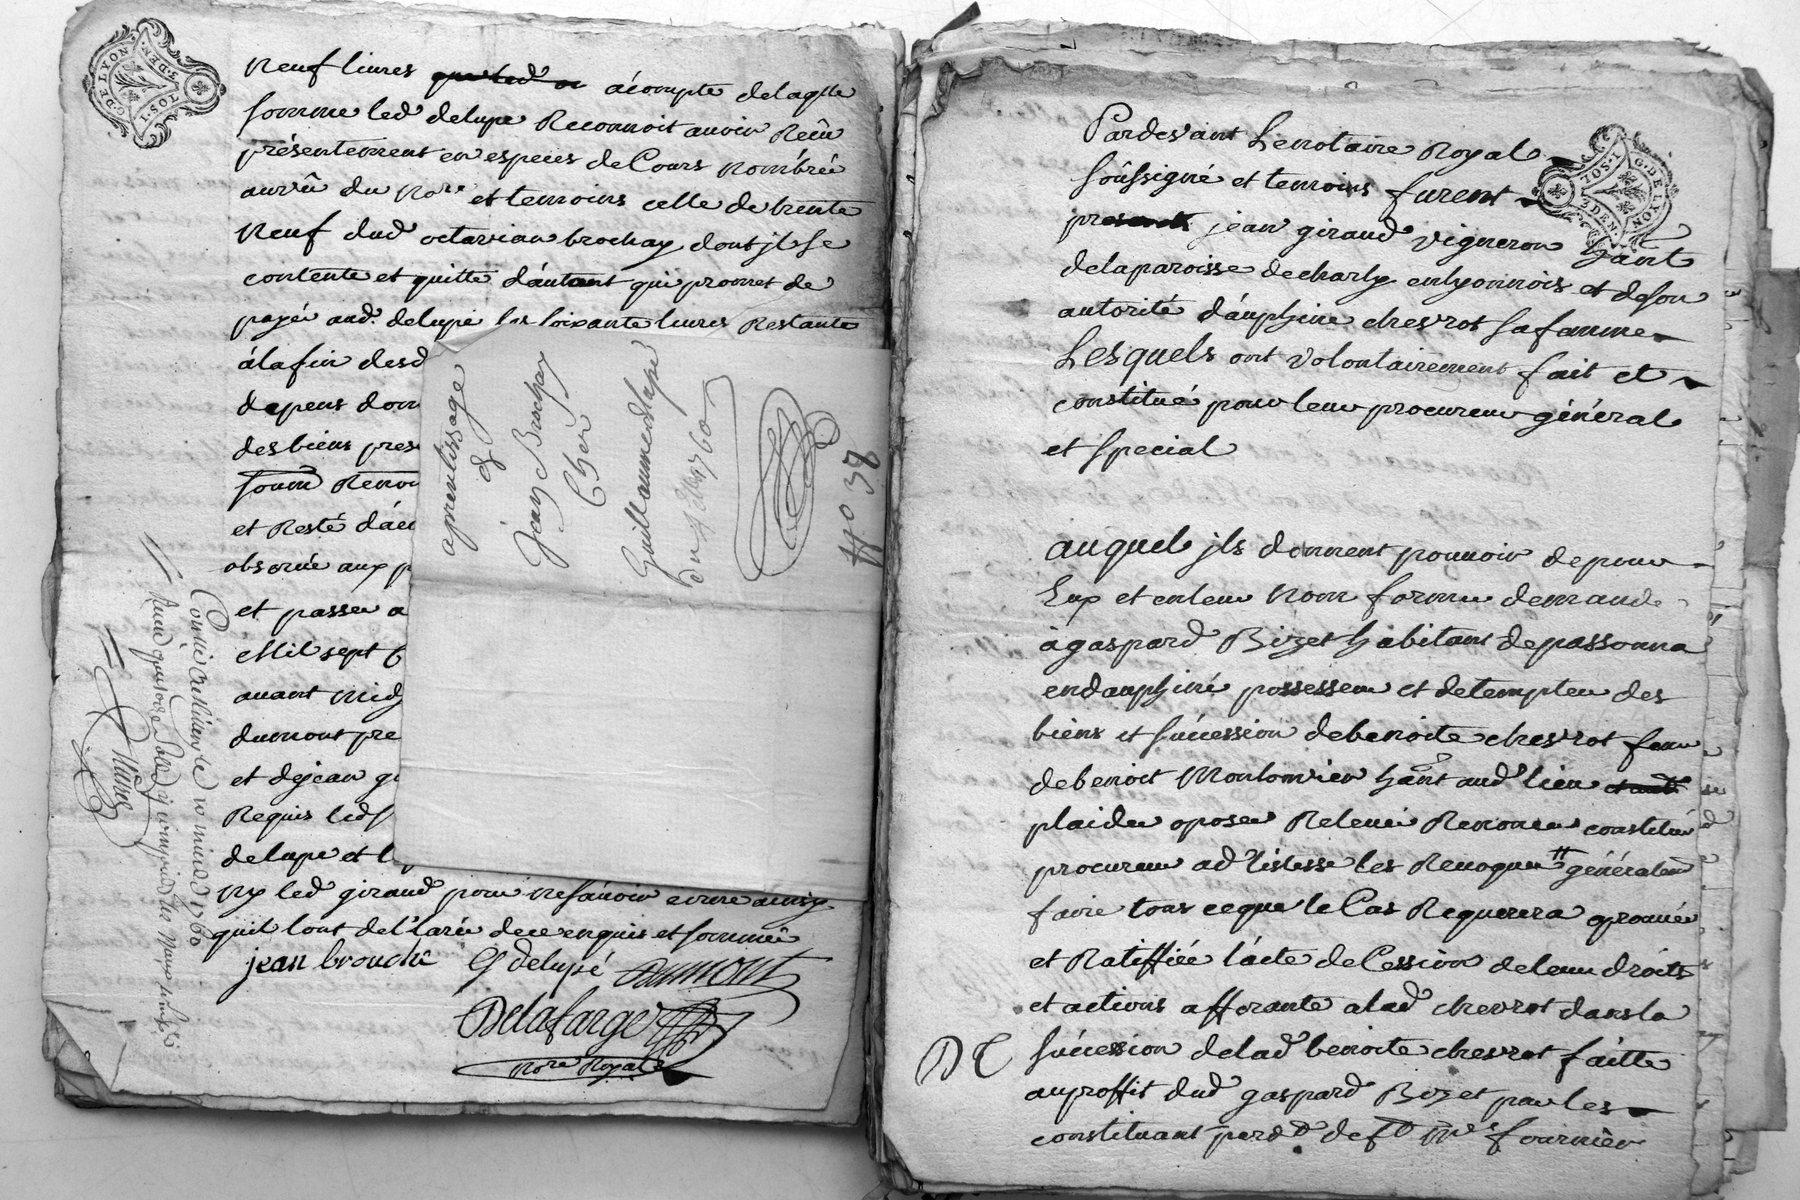 G. DE LYON
1. SOL
3. DEN.
Neuf livres àcompte delaqlle
somme led delupe Reconnoit auvoir Reçu
présentement en especes de Cours nombréé
auvéu du nore et temoins celle de trente
Neuf dud octavian brochay dont jl se
contente et quitte dáutant qui promet de
payér aud. delupé les soixante livres Restante
álafin desd
depens dom
des biens pres
soum Renon
et Resté dácc
observé aux p
et passé a
Mil sept c
avant midy
dumont pre
et dejean gi
Requis led
delupe et l
Ny led giraud pour nesáuoir ecrire ainsy
quil lont declaré dece enquis et sommé
jean brouché G delupé Dumont
Delafarge
nore Royal
Conté
aprentissage
de
jean Brochay
Chez
Guillaume delupé
du 4 Xbre 1760
no 38
Pardevant Le notaire Royal
soûssigné et temoins furent
jean giraud vigneron háint
delaparoisse decharly enlyonnois et deson
autorité dáuphine chevrot safamme
Lesquels ont volontairement fait et
constitué pour leur procureur général
et special
auquel jls donnent pouvoir depour
Eux et enleur Nom former demande
àgaspard Bizet habitant depassonna
endauphiné possesseur et detempteur des
biens et súccession debenoite chevrot femme
debenoit Montonvier háint aud lieu
plaider oposer Relever Renoncer constitué
procureur ad listesse les Revoquer générallem
faire tous ceque le Cas Requerera aprouvér
et Ratiffiér lácte deCession deleur dróits
et actions afferante alad chevrot dansla
súccession delad benoite chevrot faitte
auproffit dud gaspard Bizet par les
constituant pard deft Me fournier
G. DE LYON
1. SOL
3. DEN.